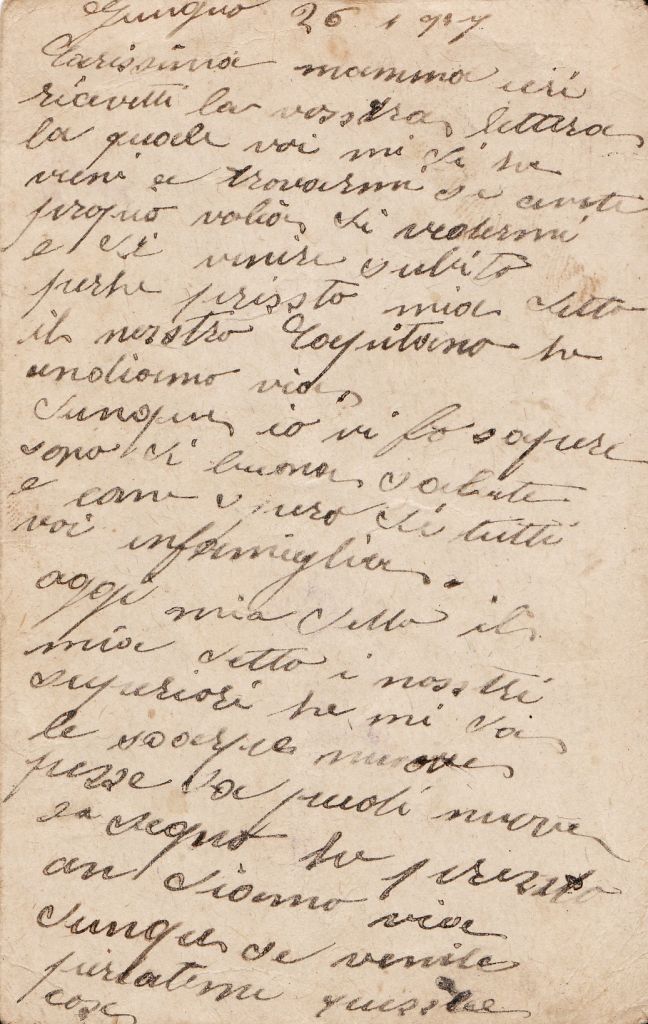 Giungno 26 1917
Carissima mamma ieri
ricevetti la vosstra lettera
la quale voi mi di he
vieni a trovarmi se avete
propio volia di vedermi
e di venire subito
perhe prissto mia detto
il nosstro Capitano he
andiamo via
dunque io vi fo sapere
sono di buona salute
e come spero di tutti
voi infamiglia
oggi mia detto il
mia detto i nosstri
superiori he mi da
le scarpe nuove
pezze da piedi nuove
ea segno he presto
an diamo via
dunque se venite
portatemi quesste
cose